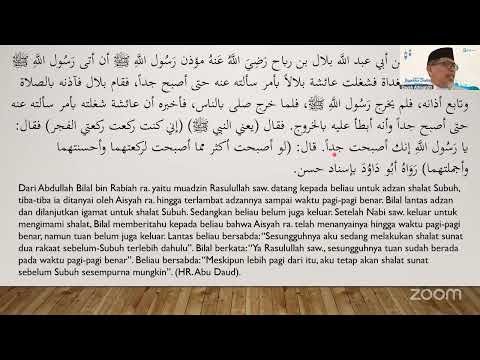 ن أبي عبد الله بلال بن رباح رَضِيَ اللَّهُ عَنهُ مؤذن رَسُول اللَّهِ ﷺ أن أتى رَسُول اللَّهِ ﷺ
غداة فشغلت عائشة بلالاً بأمر سألته عنه حتى أصبح جداً، فقام بلال فآذنه بالصلاة
وتابع أذانه، فلم يخرج رَسُول اللَّهِ ﷺ، فلما خرج صلى بالناس، فأخبره أن عائشة شغلته بأمر سألته عنه
حتى أصبح جداً وأنه أبطأ عليه بالخروج. فقال (يعني النبي ﷺ) (إني كنت ركعت ركعتي الفجر) فقال:
يا رَسُول اللَّهِ إنك أصبحت جداً. قال: (لو أصبحت أكثر مما أصبحت لركعتهما وأحسنتهما
وأجملتهما) رَوَاهُ أبُو دَاوُدَ بإسناد حسن.
Dari Abdullah Bilal bin Rabiah ra. yaitu muadzin Rasulullah saw. datang kepada beliau untuk adzan shalat Subuh,
tiba-tiba ia ditanyai oleh Aisyah ra. hingga terlambat adzannya sampai waktu pagi-pagi benar. Bilal lantas adzan
dan dilanjutkan igamat untuk shalat Subuh. Sedangkan beliau belum juga keluar. Setelah Nabi saw. keluar untuk
mengimami shalat, Bilal memberitahu kepada beliau bahwa Aisyah ra. telah menanyainya hingga waktu pagi-pagi
benar, namun tuan belum juga keluar. Lantas beliau bersabda: "Sesungguhnya aku sedang melakukan shalat sunat
dua rakaat sebelum-Subuh terlebih dahulu". Bilal berkata: "Ya Rasulullah saw., sesungguhnya tuan sudah berada
pada waktu pagi-pagi benar". Beliau bersabda: "Meskipun lebih pagi dari itu, aku tetap akan shalat sunat
sebelum Subuh sesempurna mungkin". (HR. Abu Daud).
zoom